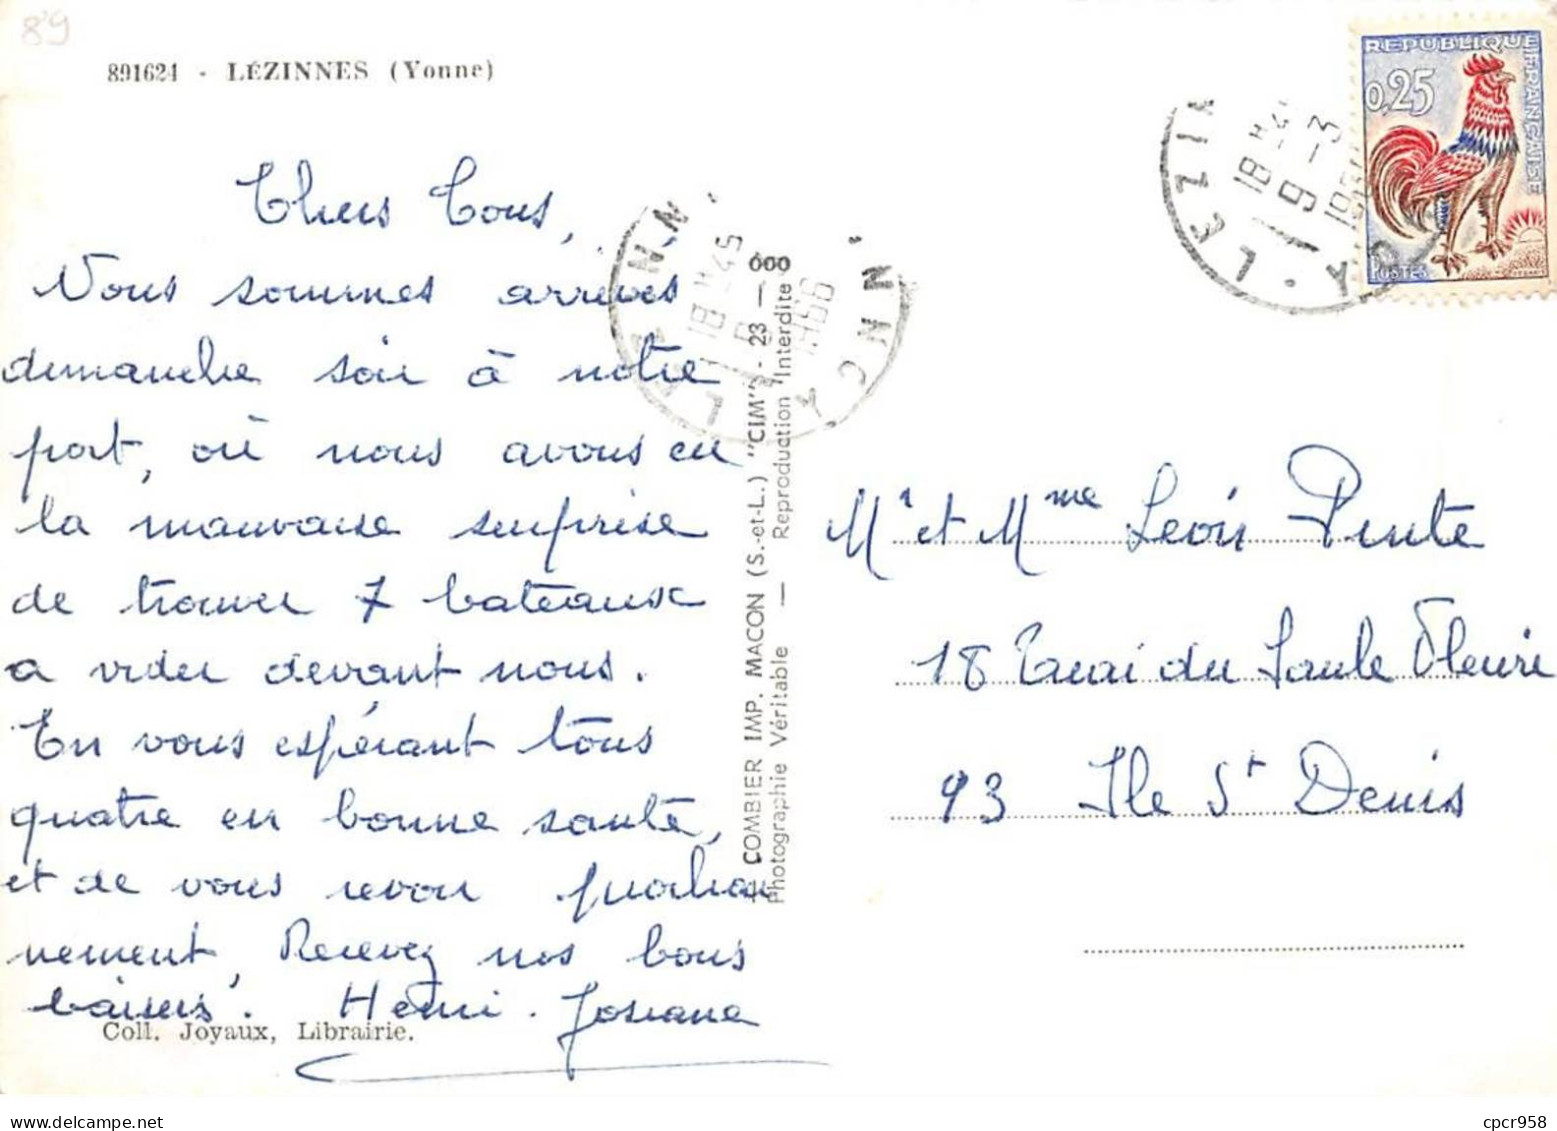 89
891624 - LÉZINNES (Yonne)
Chers Tous,
Nous sommes arrivés
dimanche soir à notre
port, où nous avons eu
la mauvaise surprise
de trouver 7 bateaux
a vider devant nous.
En vous espérant tous
quatre en bonne santé,
et de vous revoir prochai
nement, Recevez nos bons
baisers. Henri. Josiane
Coll. Joyaux, Librairie.
COMBIER IMP. MACON (S.-et-L.) "CIM" - 23 -
Photographie Véritable — Reproduction Interdite
LÉZINN
18 H 45
9 - 3
1966
YONNE
REPUBLIQUE FRANÇAISE
0,25
POSTES
Mr et Mme Léon Pinte
18 Quai du Saule Fleuri
93 Ile St Denis
cpcr958